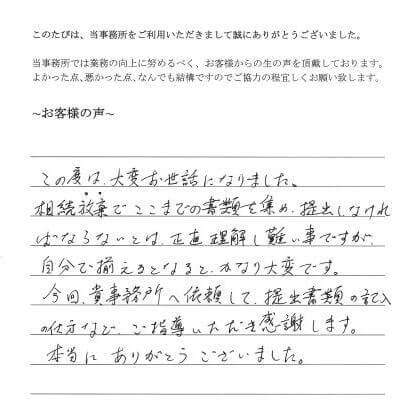 このたびは、当事務所をご利用いただきまして誠にありがとうございました。
当事務所では業務の向上に努めるべく、お客様からの生の声を頂戴しております。
よかった点、悪かった点、なんでも結構ですのでご協力の程宜しくお願い致します。
~お客様の声~
この度は、大変お世話になりました。
相続放棄でここまでの書類を集め、提出しなけれ
ばならないとは、正直理解し難い事ですが、
自分で揃えるとなると、かなり大変です。
今回、貴事務所へ依頼して、提出書類の記入
の仕方など、ご指導いただき感謝します。
本当にありがとうございました。